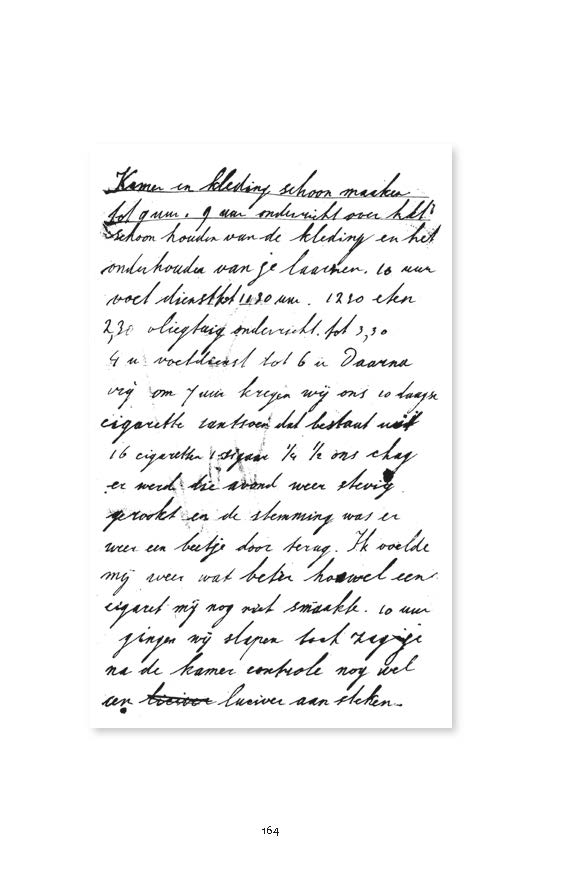 Kamer en kleding schoon maaken
tot 9 uur. 9 uur onderricht over het
schoon houden van de kleding en het
onderhouden van je laarzen. 10 uur
voet dienst tot 11.30 uur. 12 30 eten
2,30 vliegtuig onderricht. tot 3,30
4 u voetdienst tot 6 u Daarna
vrij om 7 uur kregen wij ons 10 daagse
cigarette rantsoen dat bestaat uit
16 cigaretten 1 sigaar 1/4 1/2 ons chag
er werd die avond weer stevig
gerookt en de stemming was er
weer een beetje door terug. Ik voelde
mij weer wat beter hoewel een
cigaret mij nog niet smaakte. 10 uur
gingen wij slapen toch zag je
na de kamer controle nog wel
een luciver aan steken.
164